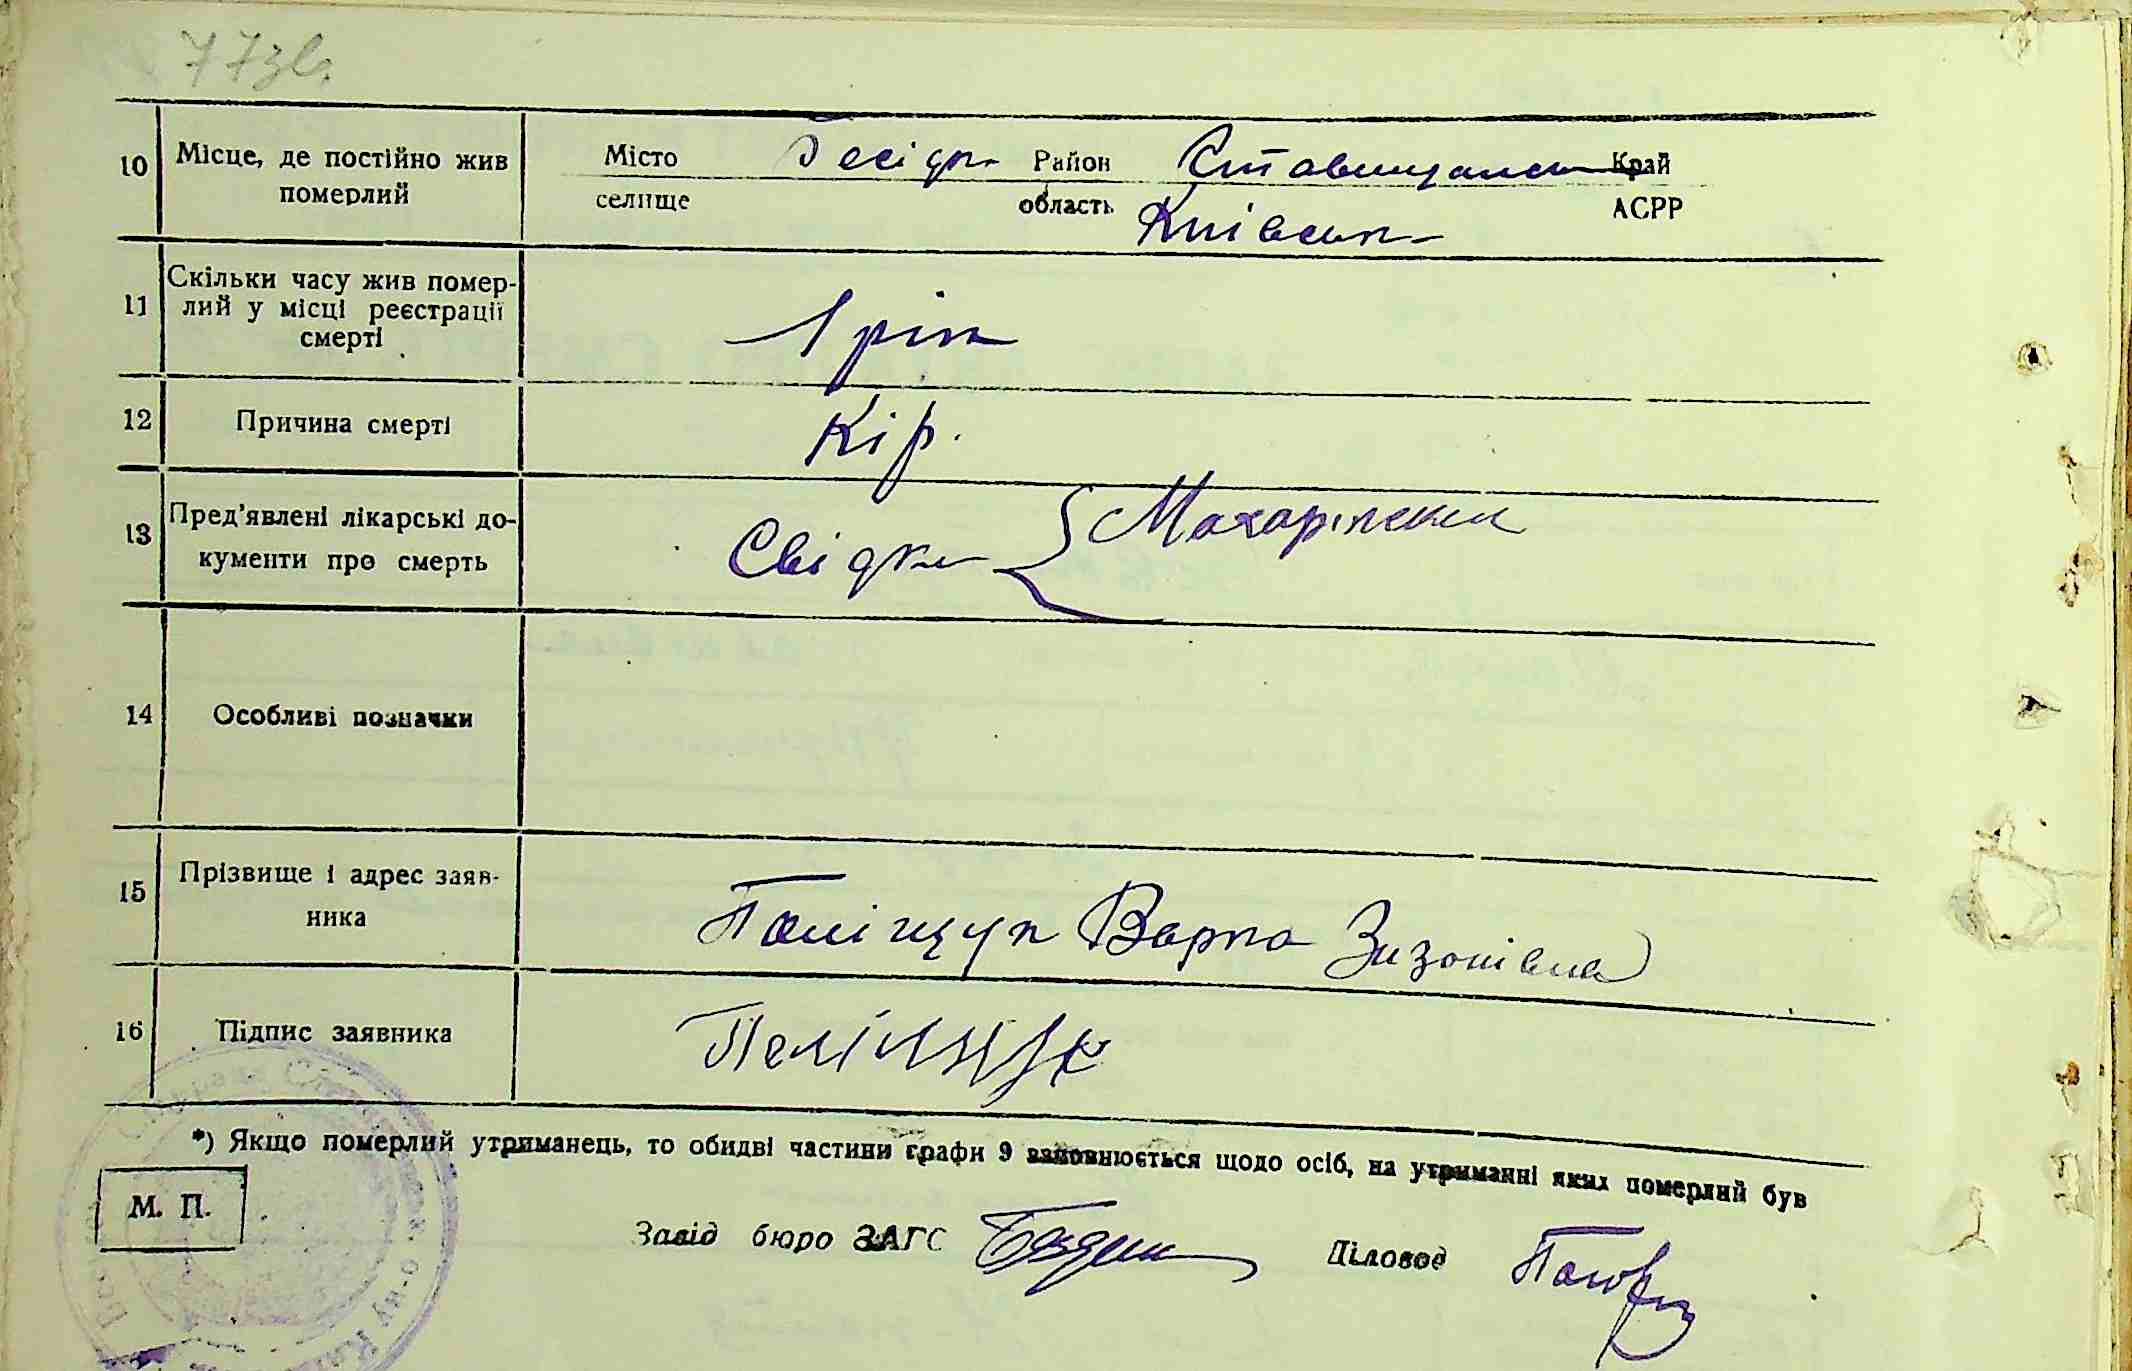 77зв.
10 Місце, де постійно жив Місто Бесідк. Район Ставищанськ Край
померлий селище область Київськ АСРР
11 Скільки часу жив помер-
лий у місці реєстрації 1 рік
смерті
12 Причина смерті Кір.
13 Пред'явлені лікарські до-
кументи про смерть Свідки
14 Особливі позначки
15 Прізвище і адрес заяв-
ника Поліщук Варка
16 Підпис заявника Поліщук
*) Якщо померлий утриманець, то обидві частини графи 9 заповнюється щодо осіб, на утриманні яких померлий був
М. П.
Завід бюро ЗАГС Діловод